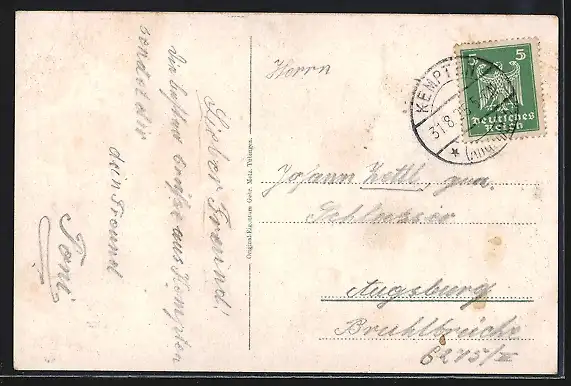 Lieber Freund!
Die besten Grüße aus Kempten
sendet dir
dein Freund
Toni
Original-Eigentum Gebr. Metz, Tübingen.
Herrn
Johann Zettl,
Schlosser
Augsburg
6275/II
KEMPTEN
31.8.
(Allg.)
5 5
Deutsches
Reich